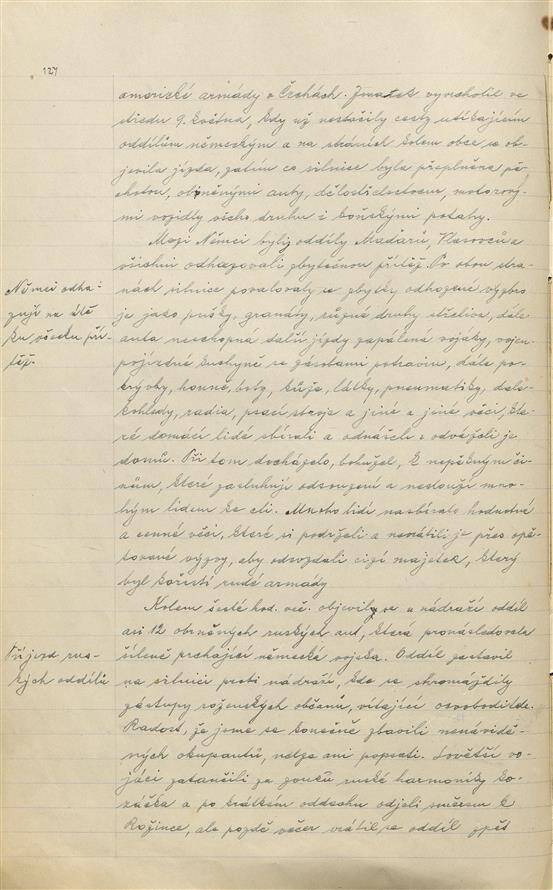 127
americké armády v Čechách. Zmatek vyvrcholil ve
středu 9. května, kdy už nestačily cesty utíkajícím
oddílům německým a na stráních kolem obce se ob-
jevila jízda, zatím co silnice byla přeplněna pě-
chotou, obrněnými auty, dělostřelectvem, motorový-
mi vozidly všeho druhu i koňskými potahy.
Mezi Němci byly oddíly Maďarů, Vlasovců a
všichni odhazovali zbytečnou přítěž. Po obou stra-
nách silnice povalovaly se zbytky odhozené výzbro
je jako pušky, granáty, různé druhy střeliva, dále
auta neschopná další jízdy zapálená vojáky, vojen.
pojízdné kuchyně se zásobami potravin, dále po-
krývky, houně, boty, kůže, látky, pneumatiky, dale-
kohledy, radia, psací stroje a jiné a jiné věci, kte-
ré domácí lidé sbírali a odnášeli i odváželi je
domů. Při tom docházelo, bohužel, k nepěkným či-
nům, které zasluhují odsouzení a neslouží mno-
hým lidem ke cti. Mnoho lidí nasbíralo hodnotné
a cenné věci, které si podrželi a nevrátili je přes opě-
tované výzvy, aby odevzdali cizí majetek, který
byl kořistí rudé armády
Němci odha-
zují na útě
ku všecku pří-
těž.
Kolem šesté hod. več. objevily se u nádraží oddíl
asi 12 obrněných ruských aut, která pronásledovala
šíleně prchající německá vojska. Oddíl zastavil
na silnici proti nádraží, kde se shromáždily
zástupy roženských občanů, vítající osvoboditele.
Radost, že jsme se konečně zbavili nenávidě-
ných okupantů, nelze ani popsati. Sovětští vo-
jáci zatančili za zvuků ruské harmoniky ko-
záčka a po krátkém oddechu odjeli směrem k
Rožince, ale pozdě večer vrátil se oddíl zpět
Příjezd rus-
kých oddílů